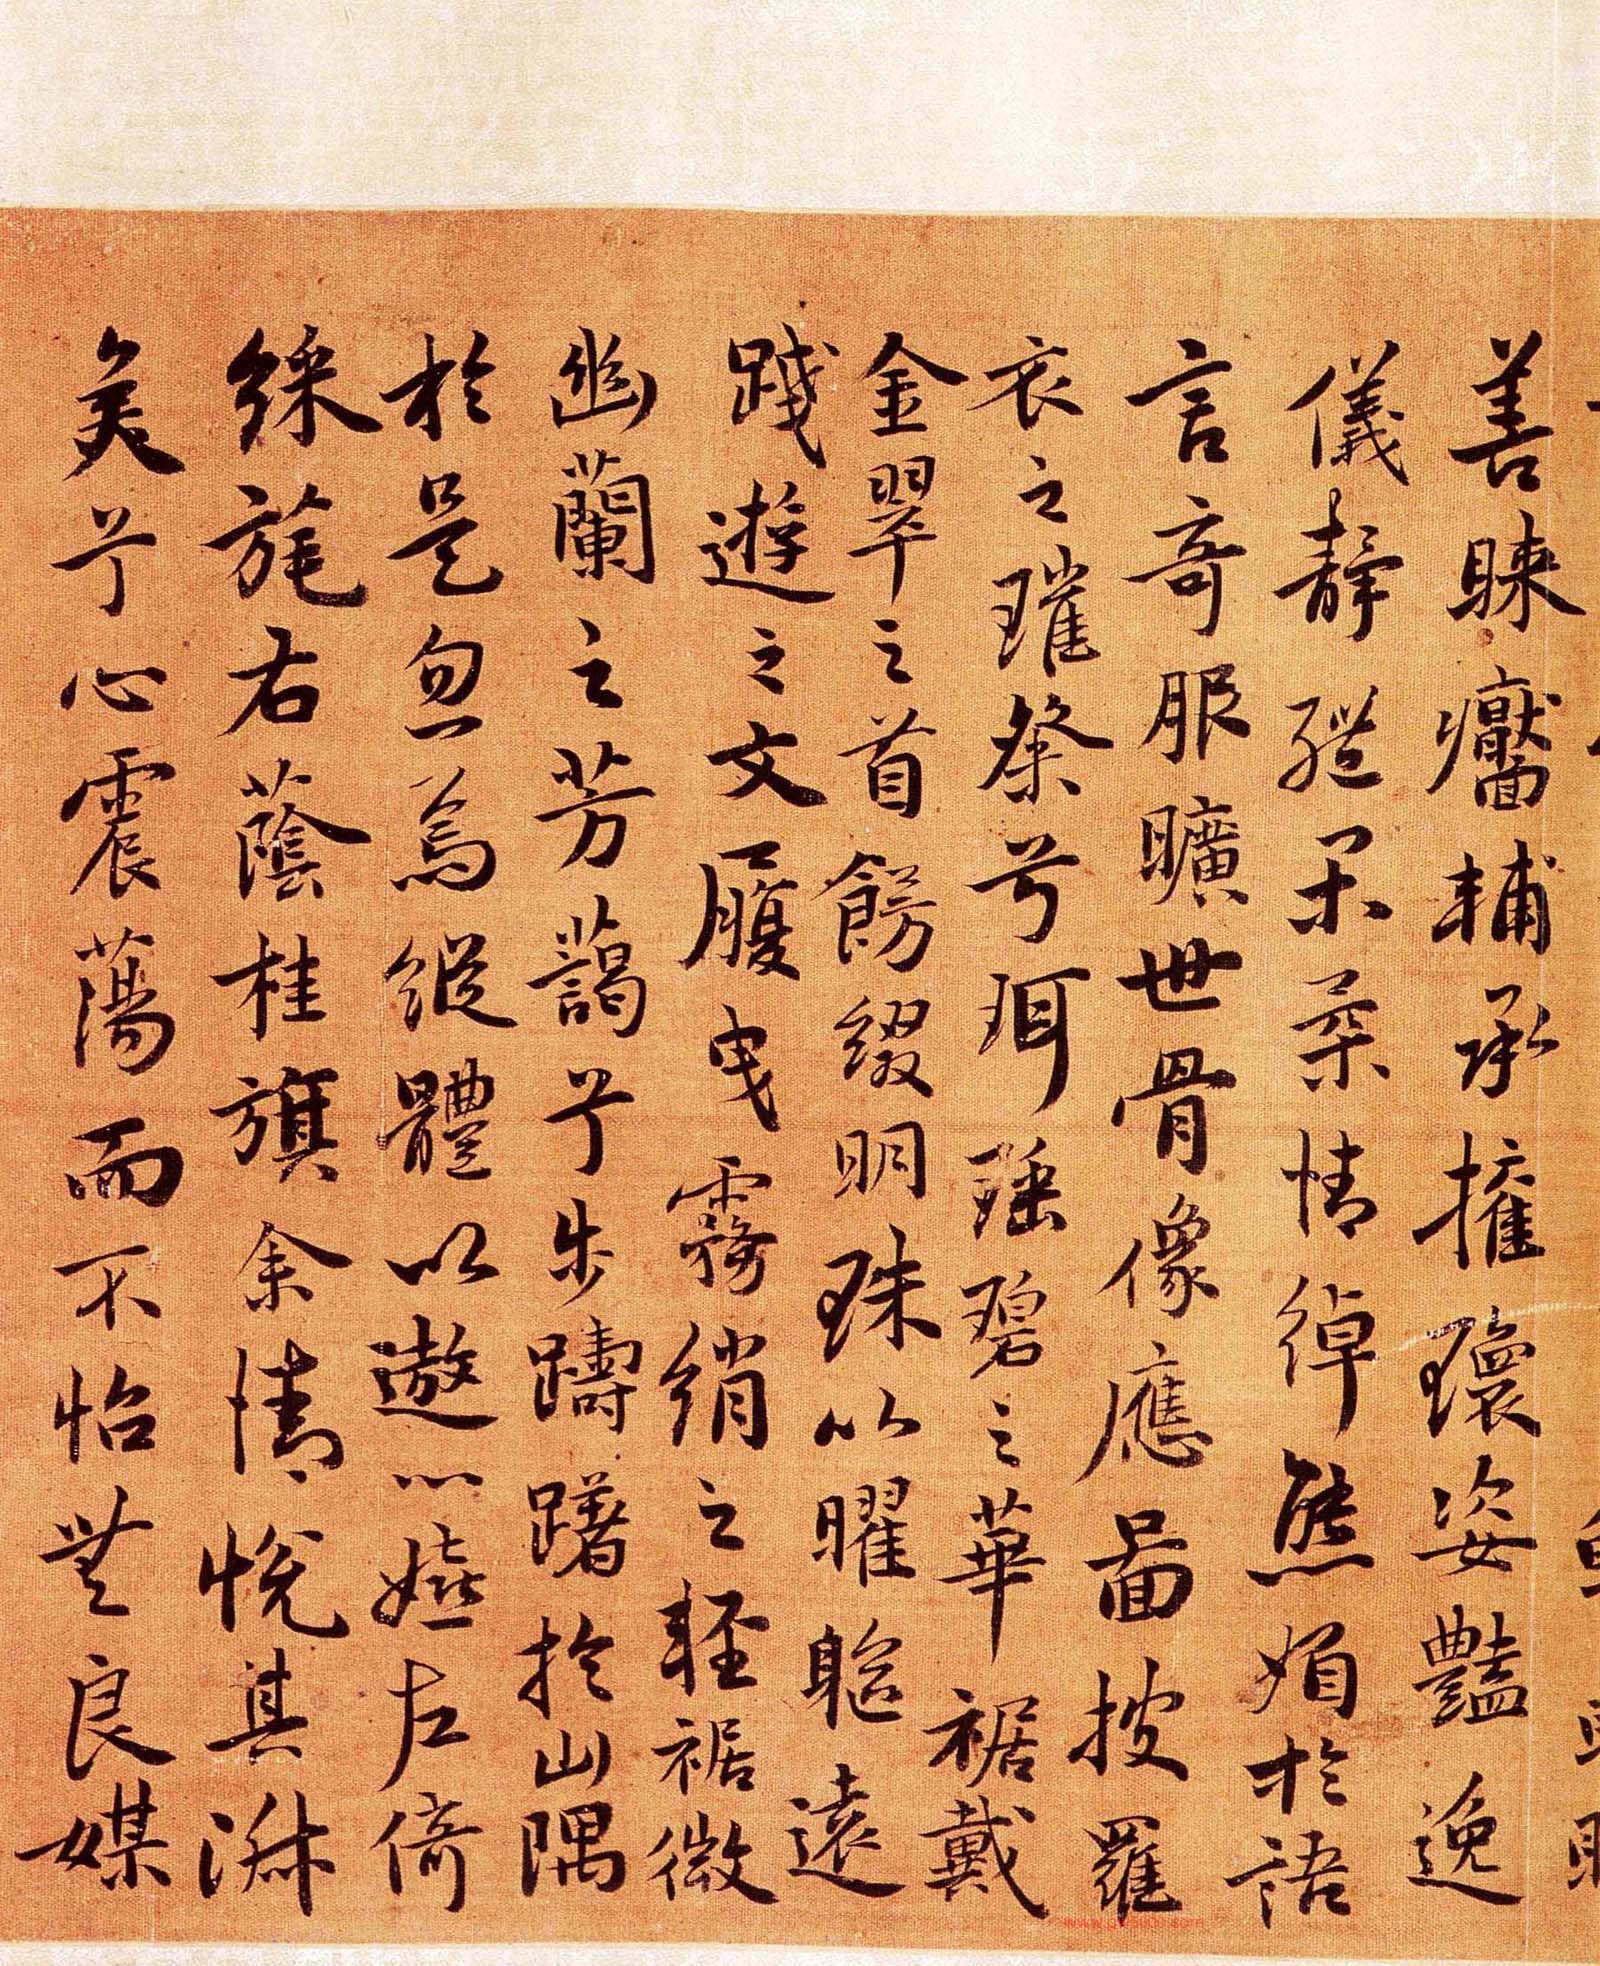 善睞靨輔承擁瓌姿豔逸
儀静體閑柔情綽態媚於語
言奇服曠世骨像應圖披羅
衣之璀粲兮珥瑶碧之華裾戴
金翠之首飾綴明珠以曜軀遠
踐遊之文履曳霧綃之輕裾微
幽蘭之芳藹兮步躊躇於山隅
於是忽焉縱體以遨以嬉左倚
綵旄右蔭桂旗余情悅其淋
美兮心震蕩而不怡無良媒
www.gsh5000.com